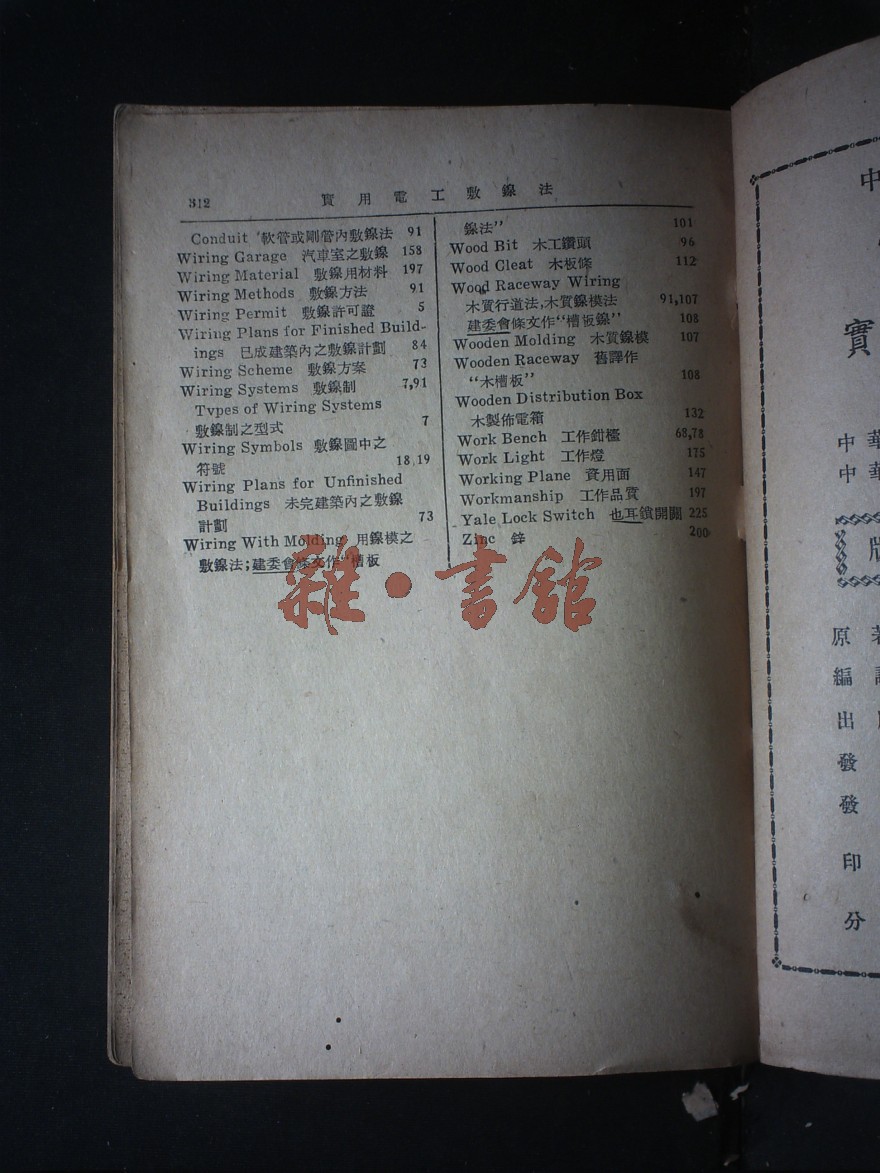 312
實用電工敷線法
Conduit 軟管或剛管內敷線法 91
Wiring Garage 汽車室之敷線 158
Wiring Material 敷線用材料 197
Wiring Methods 敷線方法 91
Wiring Permit 敷線許可證 5
Wiring Plans for Finished Build-
ings 已成建築內之敷線計劃 84
Wiring Scheme 敷線方案 73
Wiring Systems 敷線制 7,91
Types of Wiring Systems
敷線制之型式 7
Wiring Symbols 敷線圖中之
符號 18,19
Wiring Plans for Unfinished
Buildings 未完建築內之敷線
計劃 73
Wiring With Molding 用線模之
敷線法;建委會條文作"槽板
線法" 101
Wood Bit 木工鑽頭 96
Wood Cleat 木板條 112
Wood Raceway Wiring
木質行道法,木質線模法 91,107
建委會條文作"槽板線" 108
Wooden Molding 木質線模 107
Wooden Raceway 舊譯作
"木槽板" 108
Wooden Distribution Box
木製佈電箱 132
Work Bench 工作鉗檯 68,78
Work Light 工作燈 175
Working Plane 資用面 147
Workmanship 工作品質 197
Yale Lock Switch 也耳鎖開關 225
Zinc 鋅 200
雜·書館
中
實
中華
中華
版
原著
編
出
發
發
印
分